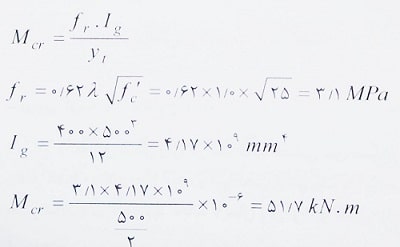 M_cr = f_r . I_g / y_t
f_r = ۰/۶۲ λ √f'_c = ۰/۶۲ × ۱/۰ × √۲۵ = ۳/۱ MPa
I_g = ۴۰۰ × ۵۰۰³ / ۱۲ = ۴/۱۷ × ۱۰⁹ mm⁴
M_cr = ۳/۱ × ۴/۱۷ × ۱۰⁹ / (۵۰۰ / ۲) × ۱۰⁻⁶ = ۵۱/۷ kN.m